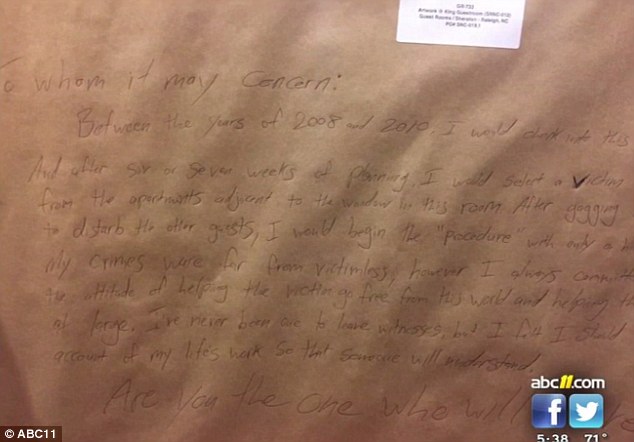 Artwork in King Guestroom
Guest Rooms / Sheraton - Raleigh, NC
To whom it may Concern:
Between the years of 2008 and 2010, I would check into this
And after six or seven weeks of planning, I would select a victim
from the apartments adjacent to the window in this room. After gagging
to disturb the other guests, I would begin the "procedure" with only a
My crimes were far from victimless, however I always
the attitude of helping the victim go free from this world and helping
at large. I've never been one to leave witnesses, but I felt I should
account of my life's work so that someone will understand
Are you the one who will
abc11.com
5:38 71°
© ABC11